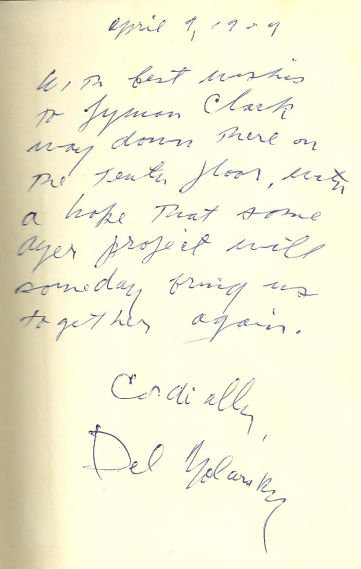 April 9, 1959
With best wishes
to Lyman Clark
way down there on
the Tenth floor, with
a hope that some
Ayer project will
someday bring us
together again.
Cordially,
Del